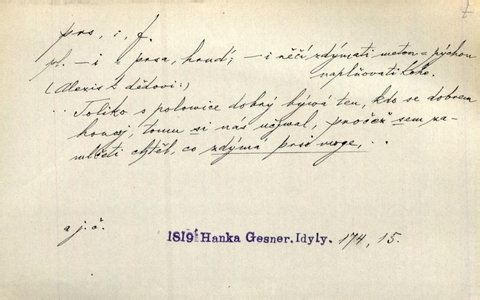 prs, i, f.
pl. – i = prsa, hruď; – i něčí zdýmati meton = pýchou
naplňovati koho.
(Alexis k dětovi:)
.. Toliko s polowice dobrý býwá ten, kdo se dobrem
honosj, tomu si nás učjwal, pročež sem za-
mlčeti chtěl, co zdýmá prsi moge, ..
a j. č.
1819 Hanka Gesner. Idyly. 174, 15.